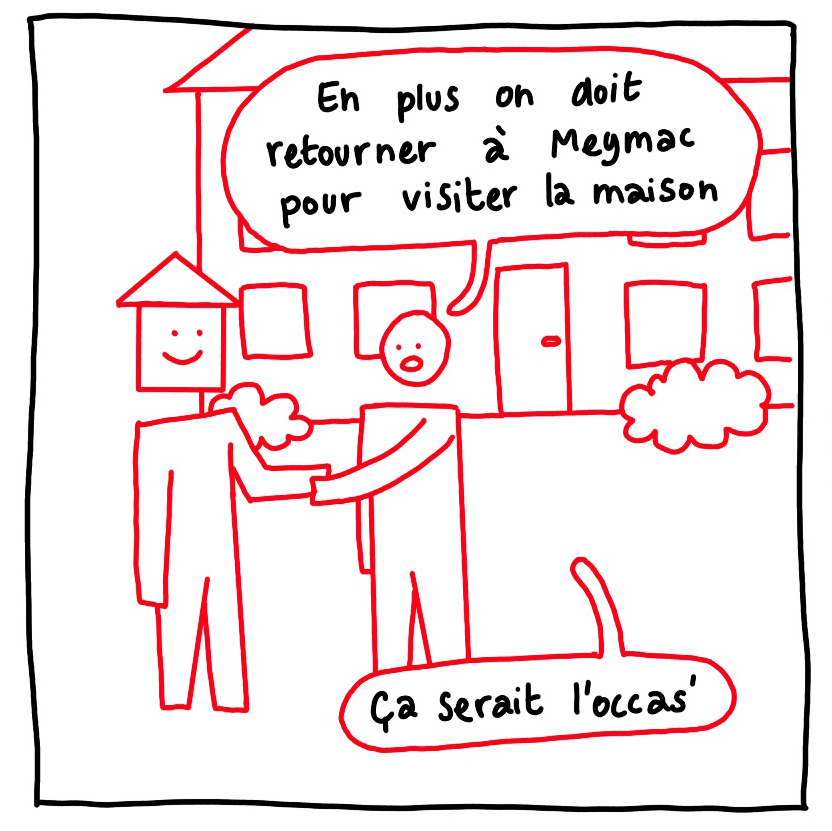 En plus on doit
retourner à Meymac
pour visiter la maison
Ça serait l'occas'